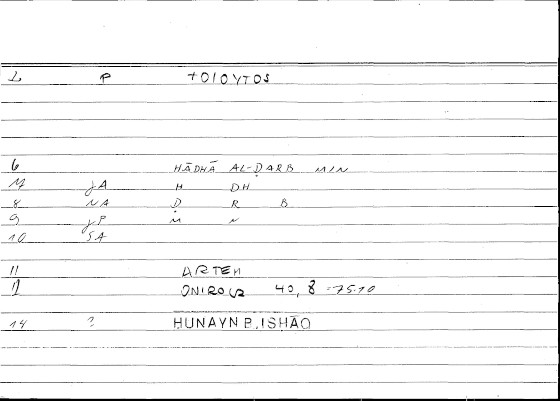 1 P TOIOYTOS
6 HĀDHĀ AL-ḌARB MIN
7 JA H DH
8 NA Ḍ R B
9 JP M N
10 SA
11 ARTEM
12 ONIROCR 40, 8 = 75.10
14 ? HUNAYN B. ISHĀQ